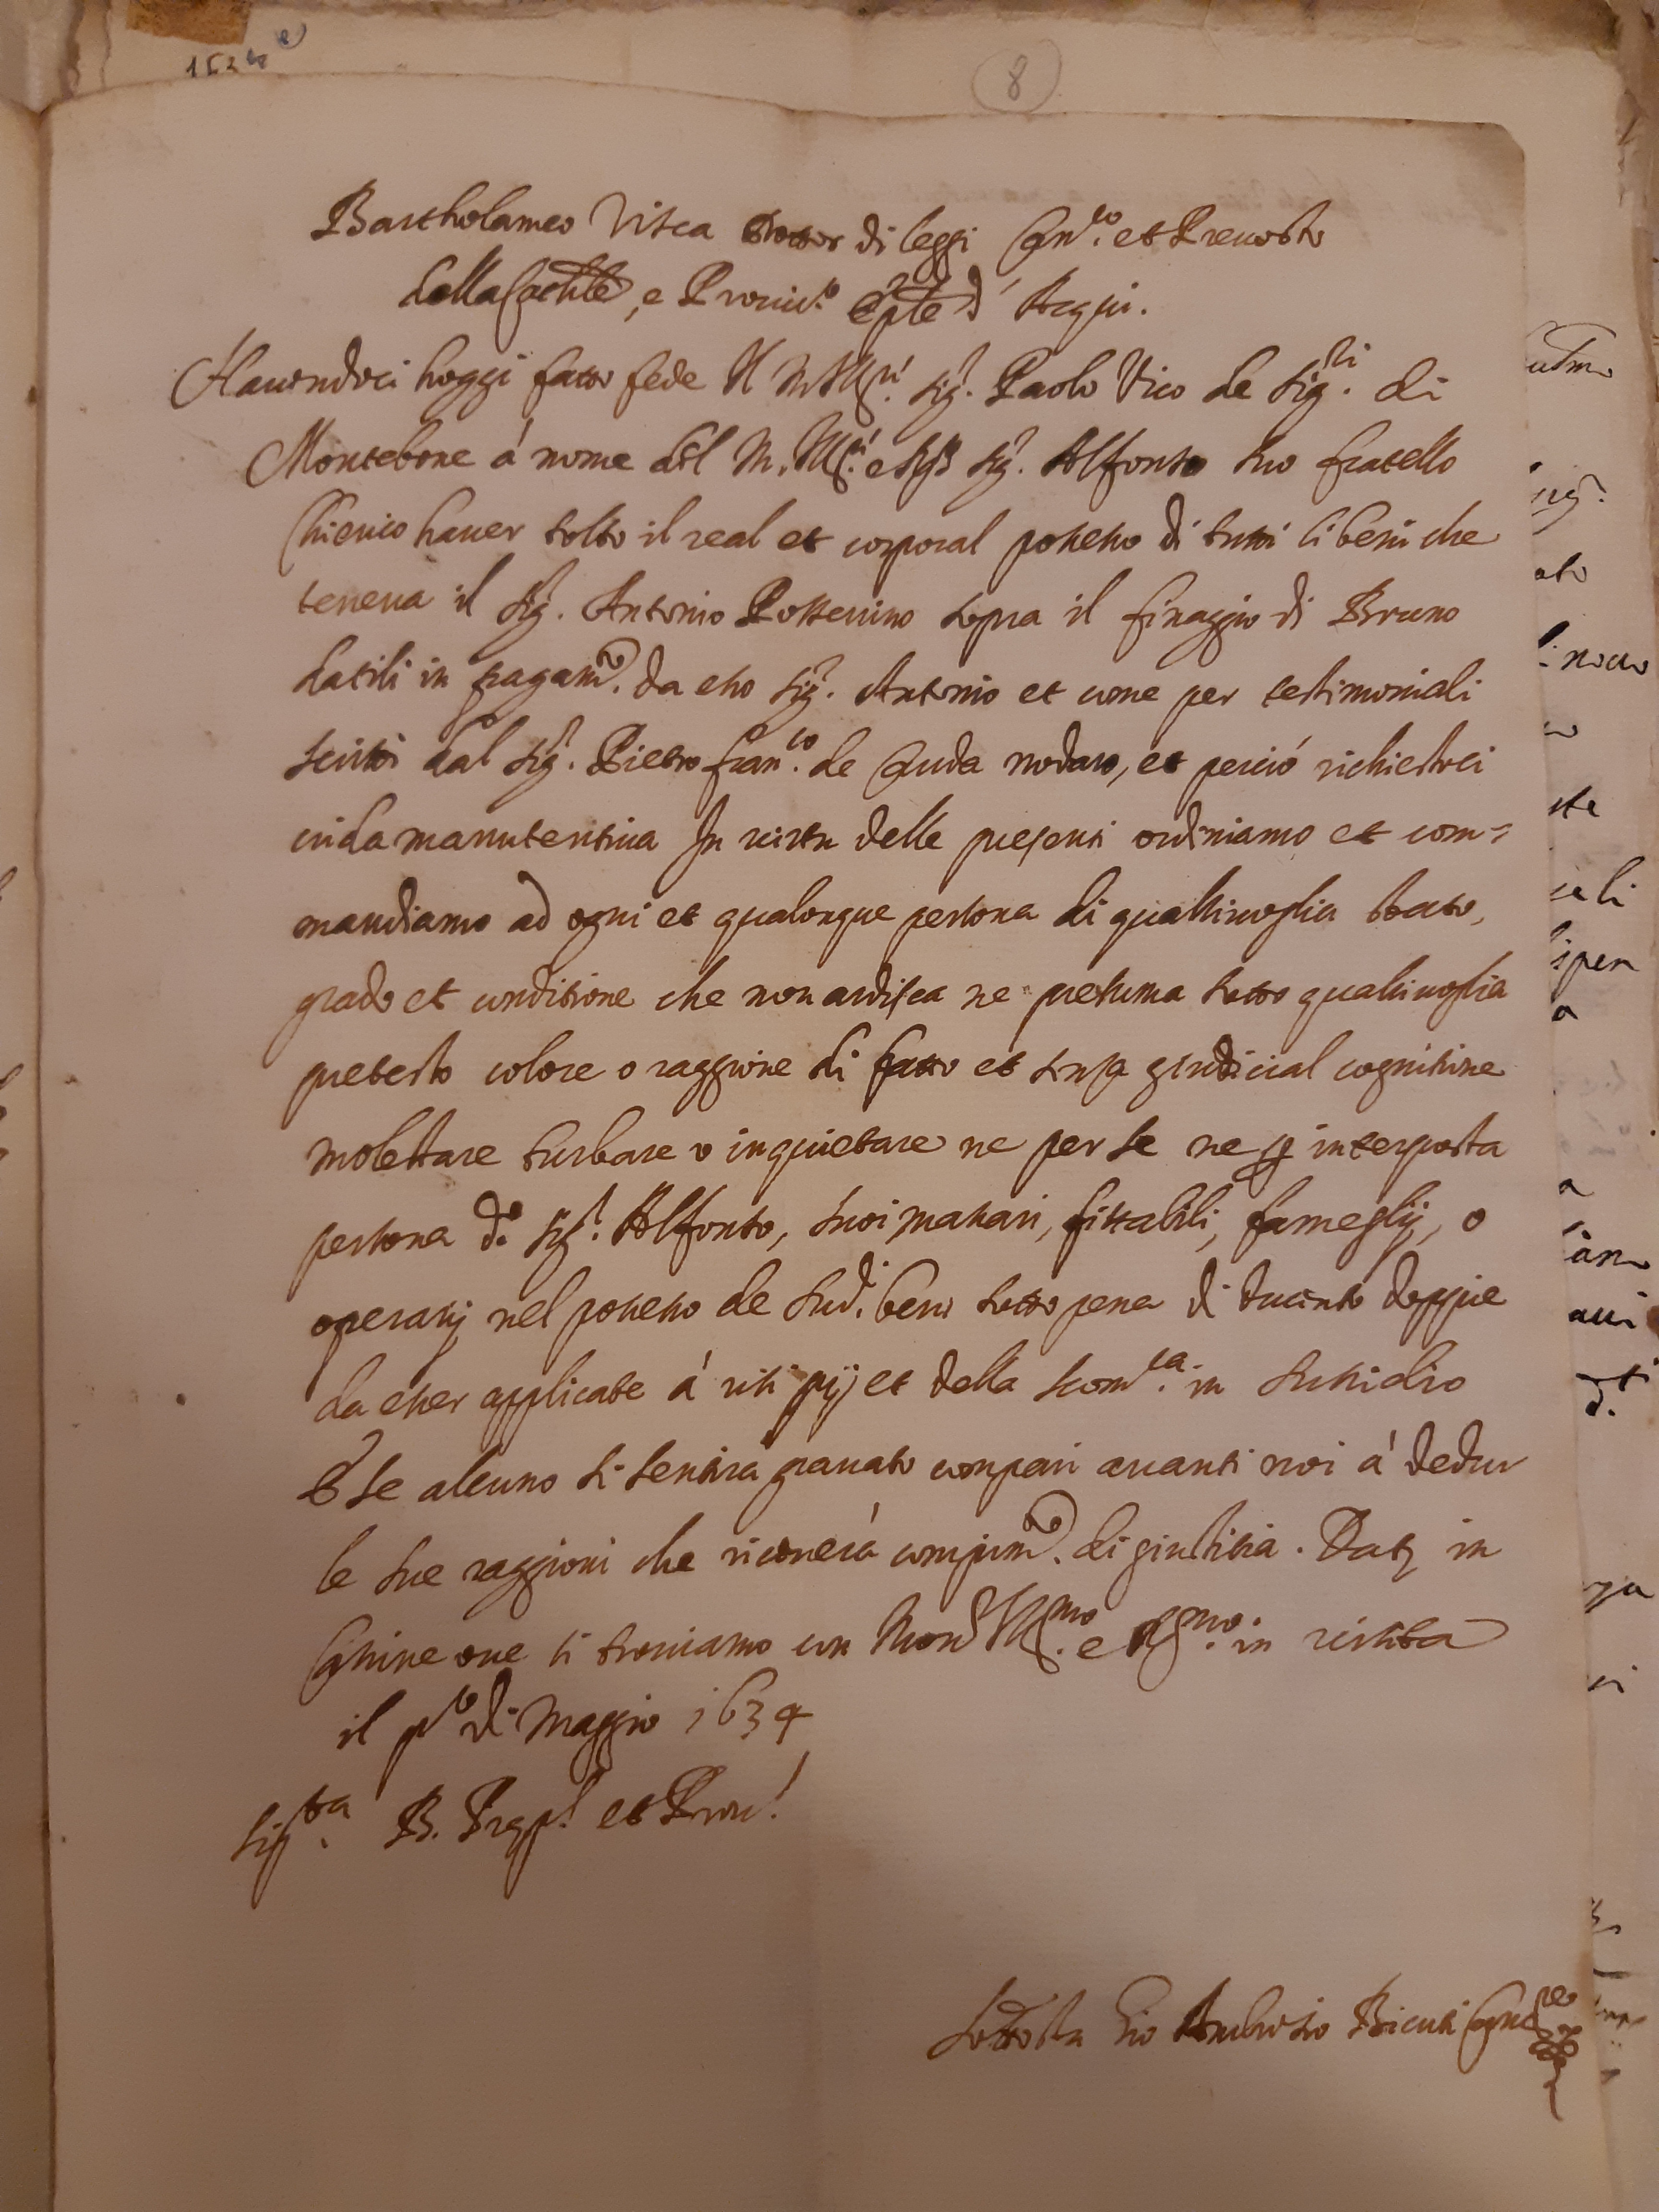 8
Bartholameo Visca Dottor di leggi Can.co et Prevosto
della Cathle, e Provic.o Eple d' Acqui.
Havendoci hoggi fatto fede Il M. Ill.ri Sig.r Paolo Vico de Sig.ri di
Montebone á nome del M. Ill.ri e Sig.r Alfonso suo fratello
Chierico haver tolto il real et corporal possesso di tutti li beni che
teneva il Sig.r Antonio Possevino sopra il finaggio di Bruno
datili in pagam.to da esso Sig.r Antonio et come per testimoniali
scritti dal Sig.r Pietro Fran.co de Guda nodaro, et perciò richiestoci
crida manutentiva In virtu delle presenti ordiniamo et com=
mandiamo ad ogni et qualonque persona di qualsivoglia stato,
grado et conditione che non ardisca ne presuma sotto qualsivoglia
pretesto colore o raggione di fatto et senza giudicial cognitione
molestare turbare o inquietare ne per se ne p interposta
persona d.o Sig.r Alfonso, suoi massari, fittabili, fameglij, o
operarij nel possesso de sud.i beni sotto pena di ducento doppie
da esser applicate á usi pij et della scom.ca in sussidio
Et se alcuno si sentirá gravato compari avanti noi á dedur
le sue raggioni che riceverá compim.to di giustitia. Dat. in
Cassine ove si troviamo con Mons.r Ill.mo e R.mo in visita
il p.o di Maggio 1634
Sig.ta B. Prep.s et Prov.s
Sottosta Gio Ambrosio Bicuti Canc.ro